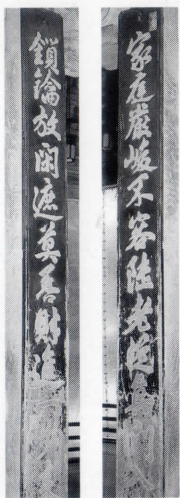 家庭嚴峻不容陸老從眞
鎖鑰放閑遮莫善財進